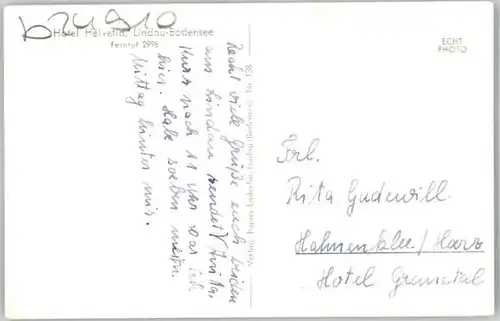 b 24910
Hotel Helvetia, Lindau-Bodensee
Fernruf 2996
ECHT
PHOTO
Recht viele Grüße euch beiden
aus Lindau sendet Anita.
Kurz nach 11 Uhr war ich
hier. Habe soeben mein
Mittag hinter mir.
Lindau (Bodensee) Nr. 138
Frl.
Rita Gudewill.
Hahnenklee/Harz
Hotel Granetal